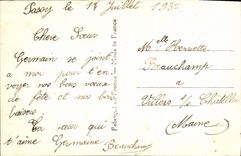 Passy le 14 Juillet 1935
Chère Sœur
Germain se joint
à moi pour t'en
voyer nos bons vœux
de fête et nos bons
baisers.
Ta sœur qui
t'aime Germaine Beauchamp
Fabriqué en France - Made in France
Melle Henriette
Beauchamp
à
Villiers s/s Chatillon
(Marne)